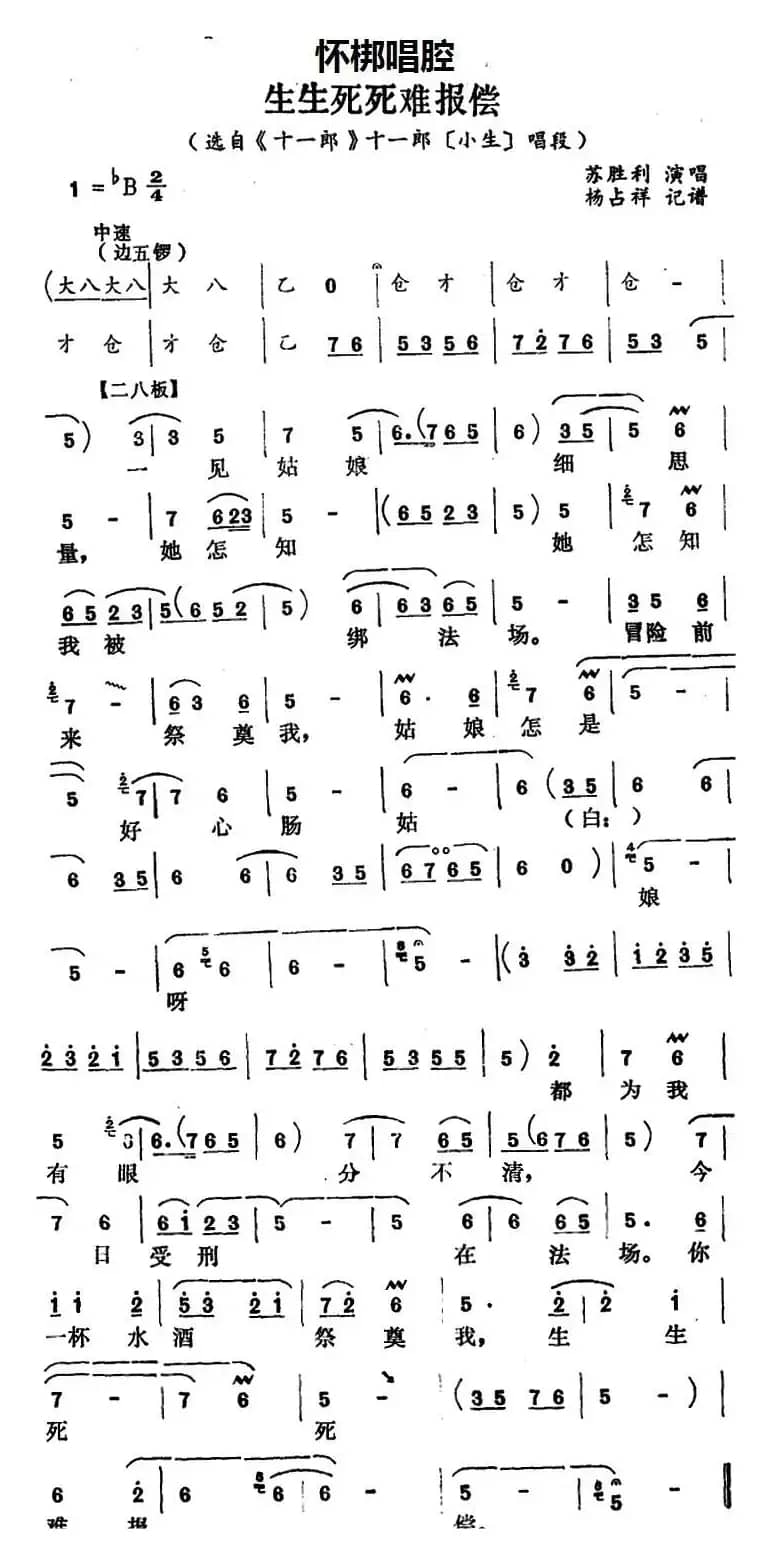 怀梆唱腔
生生死死难报偿
(选自《十一郎》十一郎〔小生〕唱段)
1=♭B 2/4
苏胜利 演唱
杨占祥 记谱
中速
(边五锣)
(大八大八|大 八|乙 0|仓 才|仓 才|仓 -|
才 仓|才 仓|乙 76|5356|7276|53 5|
【二八板】
5) 3|3 5|7 5|6.(765|6) 35|5 6|
一 见 姑 娘 细 思
5 -|7 623|5 -|(6523|5) 5|7 6|
量, 她 怎 知 她 怎 知
6523|5(652|5) 6|63 65|5 -|35 6|
我 被 绑 法 场。 冒险 前
7 -|63 6|5 -|6. 6|7 6|5 -|
来 祭 奠 我, 姑 娘 怎 是
5 7|7 6|5 -|6 -|6 (35|6 6|
好 心 肠 姑 (白:)
6 35|6 6|6 35|6765|6 0)|5 -|
娘
5 -|6 6|6 -|5 -|(3 32|1235|
呀
2321|5356|7276|5355|5) 2|7 6|
都 为 我
5 6.(765|6) 7|7 65|5(676|5) 7|
有 眼 分 不 清, 今
7 6|61 23|5 -|5 6|6 65|5. 6|
日 受 刑 在 法 场。 你
11 2|53 21|72 6|5. 2|2 1|
一杯 水 酒 祭 奠 我, 生 生
7 -|7 6|5 -|(35 76|5 -)|
死 死
6 2|6 6|6 -|5 -|5 -‖
难 报 偿。